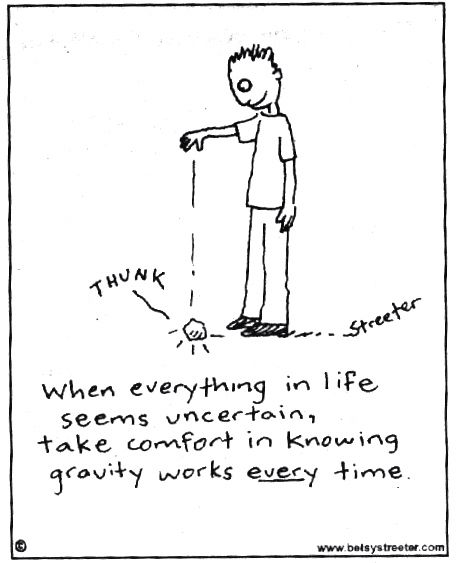 THUNK
Streeter
When everything in life
seems uncertain,
take comfort in knowing
gravity works every time.
©
www.betsystreeter.com